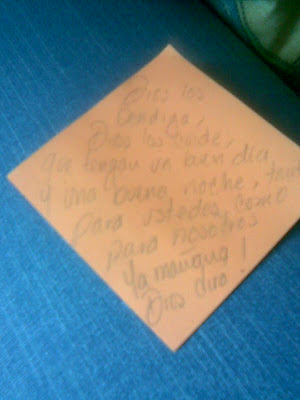 Dios los
bendiga,
Dios los cuide,
que tengan un buen dia
y una buena noche, tanto
para ustedes como
para nosotros
Ya mañana
Dios dira!